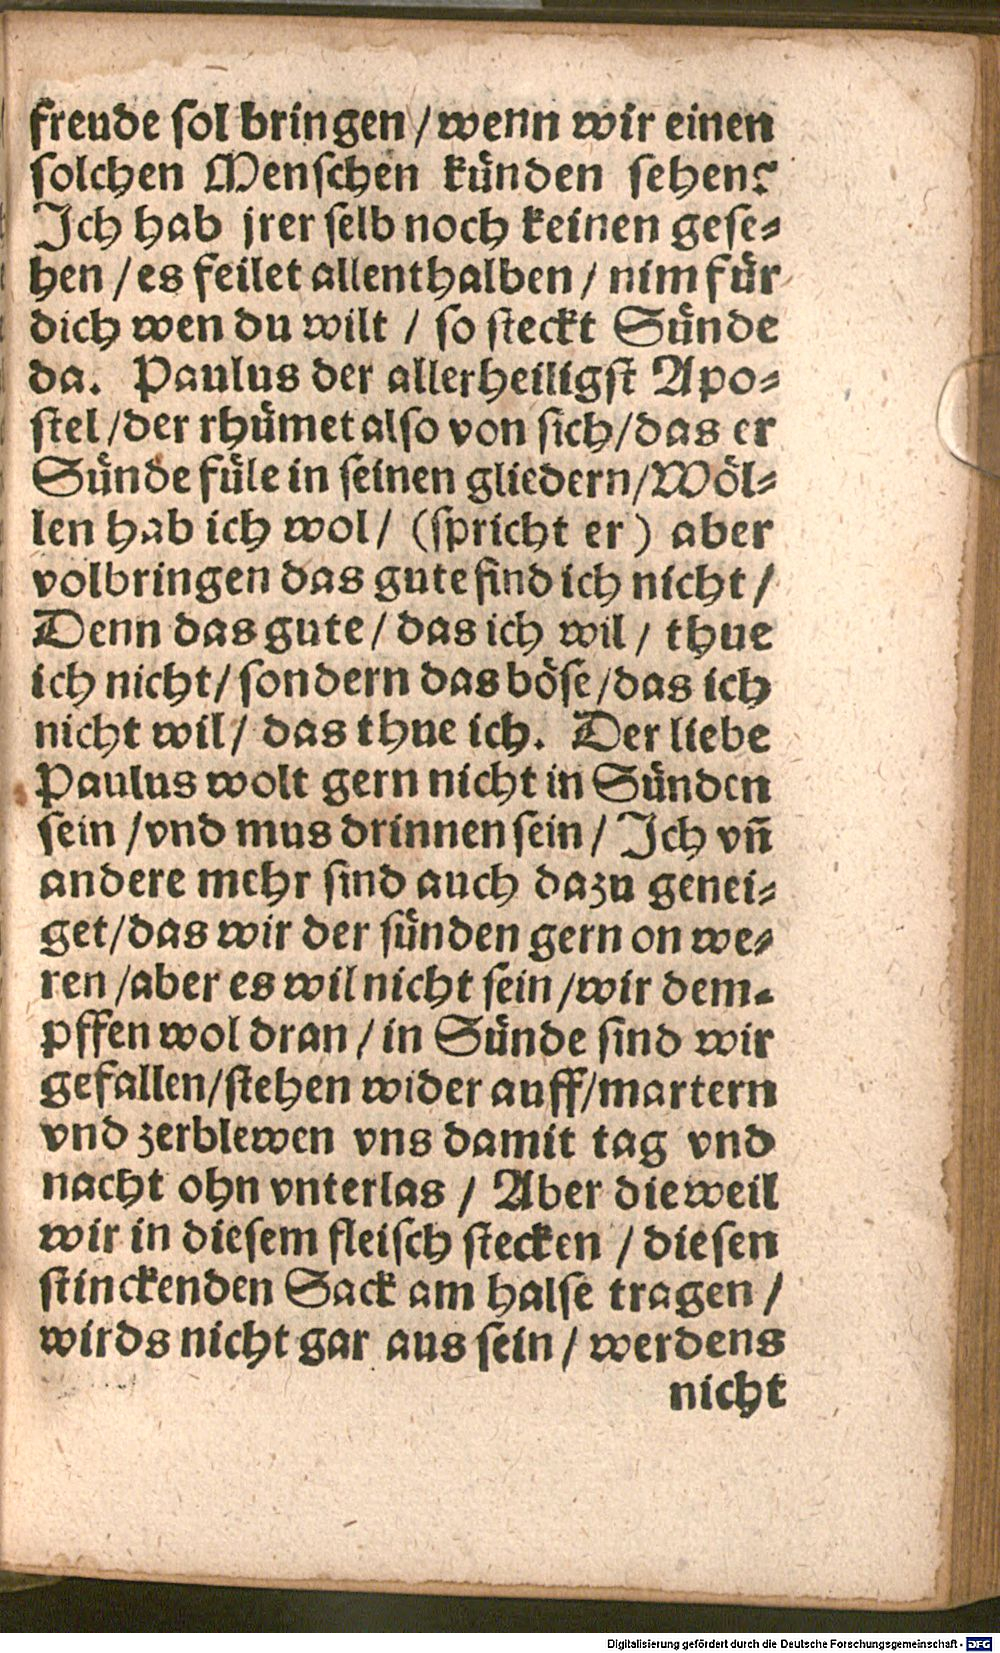 freude sol bringen / wenn wir einen
solchen Menschen künden sehen?
Ich hab jrer selb noch keinen gese⸗
hen / es feilet allenthalben / nim für
dich wen du wilt / so steckt Sünde
da. Paulus der allerheiligst Apo⸗
stel / der rhümet also von sich / das er
Sünde füle in seinen gliedern / Wöl⸗
len hab ich wol / (spricht er) aber
volbringen das gute find ich nicht /
Denn das gute / das ich wil / thue
ich nicht / sondern das böse / das ich
nicht wil / das thue ich. Der liebe
Paulus wolt gern nicht in Sünden
sein / vnd mus drinnen sein / Ich vñ
andere mehr sind auch dazu genei⸗
get / das wir der sünden gern on we⸗
ren / aber es wil nicht sein / wir dem⸗
pffen wol dran / in Sünde sind wir
gefallen / stehen wider auff / martern
vnd zerblewen vns damit tag vnd
nacht ohn vnterlas / Aber dieweil
wir in diesem fleisch stecken / diesen
stinckenden Sack am halse tragen /
wirds nicht gar aus sein / werdens
nicht
Digitalisierung gefördert durch die Deutsche Forschungsgemeinschaft - DFG